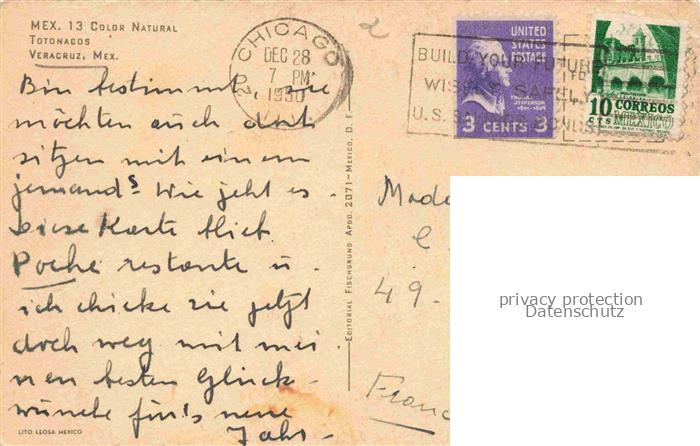 MEX. 13 COLOR NATURAL
TOTONACOS
VERACRUZ, MEX.
Bin bestimmt, sie
möchten auch dort
sitzen mit einem
jemand? Wie jeht es -
Diese Karte blieb
Poche restante u.
ich chicke sie jetzt
doch weg mit mei
nen besten Glück-
wünche für's neue
Jahr -
LITO LEOSA MEXICO
EDITORIAL FISCHGRUND APDO. 2071-MEXICO, D. F.
2
CHICAGO
DEC 28
7 PM
1950
20
BUILD YOUR FUTURE
WISELY SAFELY
U.S. SAVINGS BONDS
UNITED
STATES
POSTAGE
THOMAS
JEFFERSON
3 CENTS 3
10 CORREOS
CTS MEXICO
Made
e
49-
Franc
privacy protection
Datenschutz